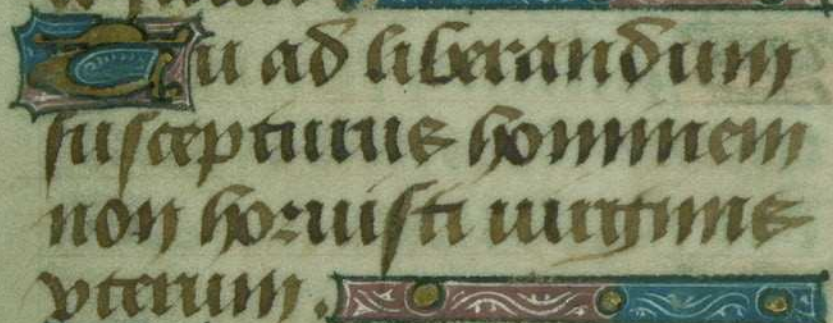 Tu ad liberandum
suscepturus hominem
non horuisti uirginis
vterum.